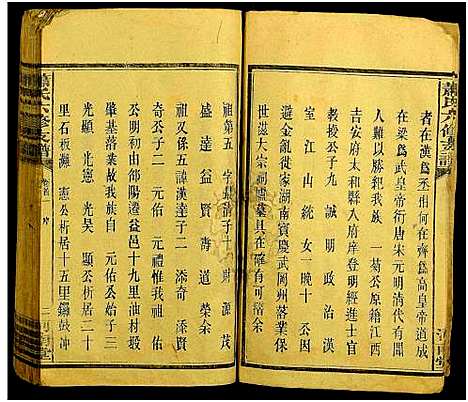 蕭氏六修支譜
者在漢爲丞相何在齊爲高皇帝道成
在梁爲武皇帝衍唐宋元明清代有聞
人難以勝紀我族一葛公原籍江西
吉安府太和縣八府岸登明經進士官
教授公子九誠明政治漢
室江山統女一晚十公因
避金亂徙家湖南寶慶武岡州落業保
世大宗祠墟墓具在確有可稽餘
祖第五字鼎淸子十財源茂
盛達益賢靑道榮余
祖又徙五諱漢達子二添添資
奇公子二元佑元禮惟我祖佑
公明初由邵陽遷益邑十九里油村塅
肇基落業故我族自元佑公始子三
光憲光昊顯公析居二十
里石板灘憲公析居十五里鑼鼓冲
蕭氏六修支譜
卷首
序